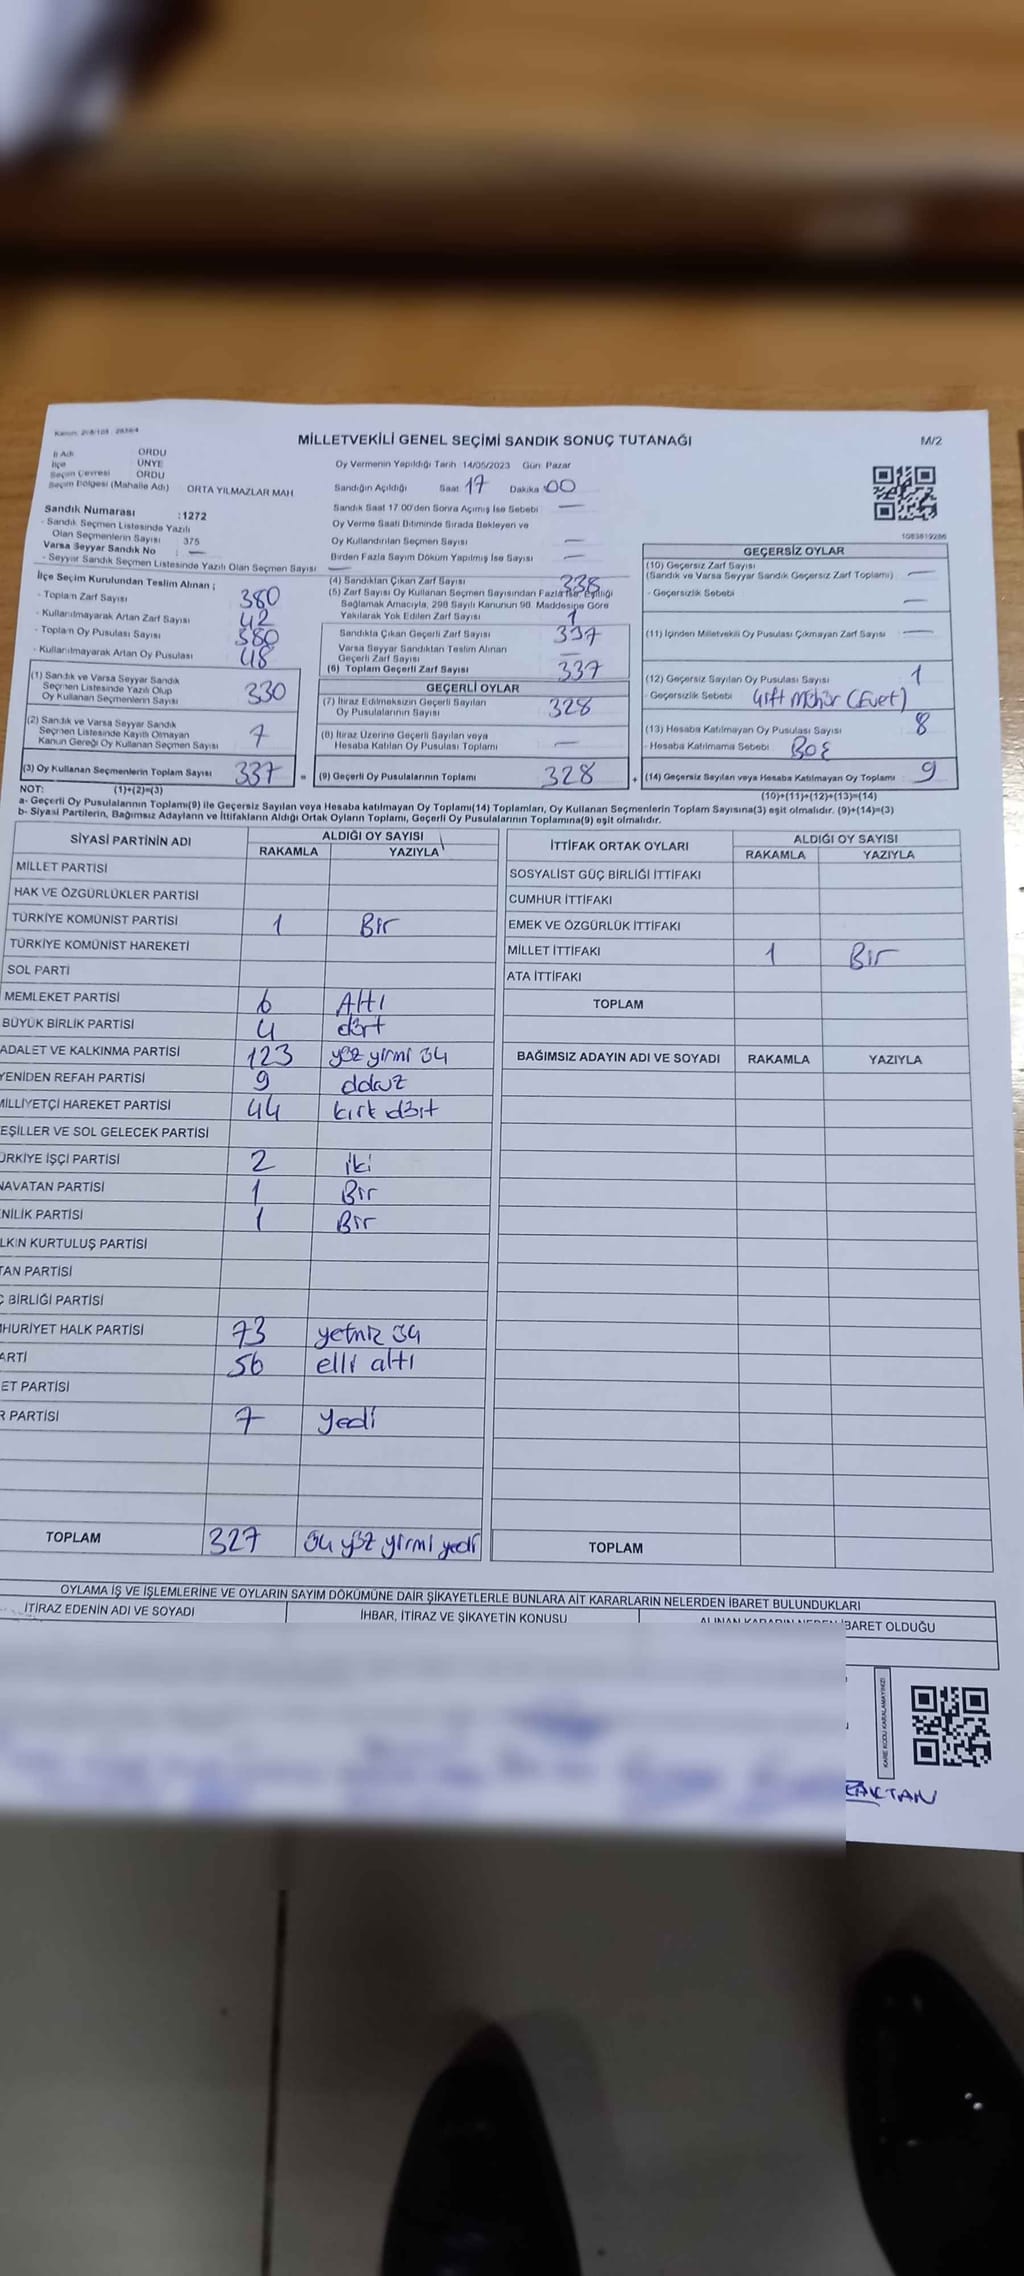 Kanun: 298/105 - 2839/4
MİLLETVEKİLİ GENEL SEÇİMİ SANDIK SONUÇ TUTANAĞI
M/2
İl Adı ORDU
İlçe ÜNYE
Seçim Çevresi ORDU
Seçim Bölgesi (Mahalle Adı) ORTA YILMAZLAR MAH.
Oy Vermenin Yapıldığı Tarih 14/05/2023 Gün: Pazar
Sandığın Açıldığı Saat 17 Dakika 00
Sandık Saat 17.00'den Sonra Açımış İse Sebebi —
Oy Verme Saati Bitiminde Sırada Bekleyen ve
Oy Kullandırılan Seçmen Sayısı —
Birden Fazla Sayım Döküm Yapılmış İse Sayısı —
Sandık Numarası :1272
- Sandık Seçmen Listesinde Yazılı
Olan Seçmenlerin Sayısı 375
Varsa Seyyar Sandık No : —
- Seyyar Sandık Seçmen Listesinde Yazılı Olan Seçmen Sayısı —
İlçe Seçim Kurulundan Teslim Alınan ;
- Toplam Zarf Sayısı 380
- Kullanılmayarak Artan Zarf Sayısı 42
- Toplam Oy Pusulası Sayısı 380
- Kullanılmayarak Artan Oy Pusulası 48
(1) Sandık ve Varsa Seyyar Sandık
Seçmen Listesinde Yazılı Olup
Oy Kullanan Seçmenlerin Sayısı 330
(2) Sandık ve Varsa Seyyar Sandık
Seçmen Listesinde Kayıtlı Olmayan
Kanun Gereği Oy Kullanan Seçmen Sayısı 7
(3) Oy Kullanan Seçmenlerin Toplam Sayısı 337
(4) Sandıktan Çıkan Zarf Sayısı 338
(5) Zarf Sayısı Oy Kullanan Seçmen Sayısından Fazla İse, Eşitliği
Sağlamak Amacıyla, 298 Sayılı Kanunun 98. Maddesine Göre
Yakılarak Yok Edilen Zarf Sayısı 1
Sandıkta Çıkan Geçerli Zarf Sayısı 337
Varsa Seyyar Sandıktan Teslim Alınan
Geçerli Zarf Sayısı —
(6) Toplam Geçerli Zarf Sayısı 337
GEÇERLİ OYLAR
(7) İtiraz Edilmeksizin Geçerli Sayılan
Oy Pusulalarının Sayısı 328
(8) İtiraz Üzerine Geçerli Sayılan veya
Hesaba Katılan Oy Pusulası Toplamı —
= (9) Geçerli Oy Pusulalarının Toplamı 328
1083819286
GEÇERSİZ OYLAR
(10) Geçersiz Zarf Sayısı
(Sandık ve Varsa Seyyar Sandık Geçersiz Zarf Toplamı) —
- Geçersizlik Sebebi —
(11) İçinden Milletvekili Oy Pusulası Çıkmayan Zarf Sayısı —
(12) Geçersiz Sayılan Oy Pusulası Sayısı 1
- Geçersizlik Sebebi Çift Mühür (Evet)
(13) Hesaba Katılmayan Oy Pusulası Sayısı 8
- Hesaba Katılmama Sebebi Boş
+ (14) Geçersiz Sayılan veya Hesaba Katılmayan Oy Toplamı 9
NOT: (1)+(2)=(3) (10)+(11)+(12)+(13)=(14)
a- Geçerli Oy Pusulalarının Toplamı(9) ile Geçersiz Sayılan veya Hesaba katılmayan Oy Toplamı(14) Toplamları, Oy Kullanan Seçmenlerin Toplam Sayısına(3) eşit olmalıdır. (9)+(14)=(3)
b- Siyasi Partilerin, Bağımsız Adayların ve İttifakların Aldığı Ortak Oyların Toplamı, Geçerli Oy Pusulalarının Toplamına(9) eşit olmalıdır.
SİYASİ PARTİNİN ADI ALDIĞI OY SAYISI
RAKAMLA YAZIYLA
MİLLET PARTİSİ
HAK VE ÖZGÜRLÜKLER PARTİSİ
TÜRKİYE KOMÜNİST PARTİSİ 1 Bir
TÜRKİYE KOMÜNİST HAREKETİ
SOL PARTİ
MEMLEKET PARTİSİ 6 Altı
BÜYÜK BİRLİK PARTİSİ 4 dört
ADALET VE KALKINMA PARTİSİ 123 yüz yirmi üç
YENİDEN REFAH PARTİSİ 9 dokuz
MİLLİYETÇİ HAREKET PARTİSİ 44 kırk dört
EŞİLLER VE SOL GELECEK PARTİSİ
ÜRKİYE İŞÇİ PARTİSİ 2 iki
NAVATAN PARTİSİ 1 Bir
ENİLİK PARTİSİ 1 Bir
LKIN KURTULUŞ PARTİSİ
TAN PARTİSİ
Ç BİRLİĞİ PARTİSİ
MHURİYET HALK PARTİSİ 73 yetmiş üç
ARTİ 56 elli altı
ET PARTİSİ
R PARTİSİ 7 yedi
TOPLAM 327 üç yüz yirmi yedi
İTTİFAK ORTAK OYLARI ALDIĞI OY SAYISI
RAKAMLA YAZIYLA
SOSYALİST GÜÇ BİRLİĞİ İTTİFAKI
CUMHUR İTTİFAKI
EMEK VE ÖZGÜRLÜK İTTİFAKI
MİLLET İTTİFAKI 1 Bir
ATA İTTİFAKI
TOPLAM
BAĞIMSIZ ADAYIN ADI VE SOYADI RAKAMLA YAZIYLA
TOPLAM
OYLAMA İŞ VE İŞLEMLERİNE VE OYLARIN SAYIM DÖKÜMÜNE DAİR ŞİKAYETLERLE BUNLARA AİT KARARLARIN NELERDEN İBARET BULUNDUKLARI
İTİRAZ EDENİN ADI VE SOYADI İHBAR, İTİRAZ VE ŞİKAYETİN KONUSU ALINAN KARARIN NEDEN İBARET OLDUĞU
KARE KODU KARALAMAYINIZ!